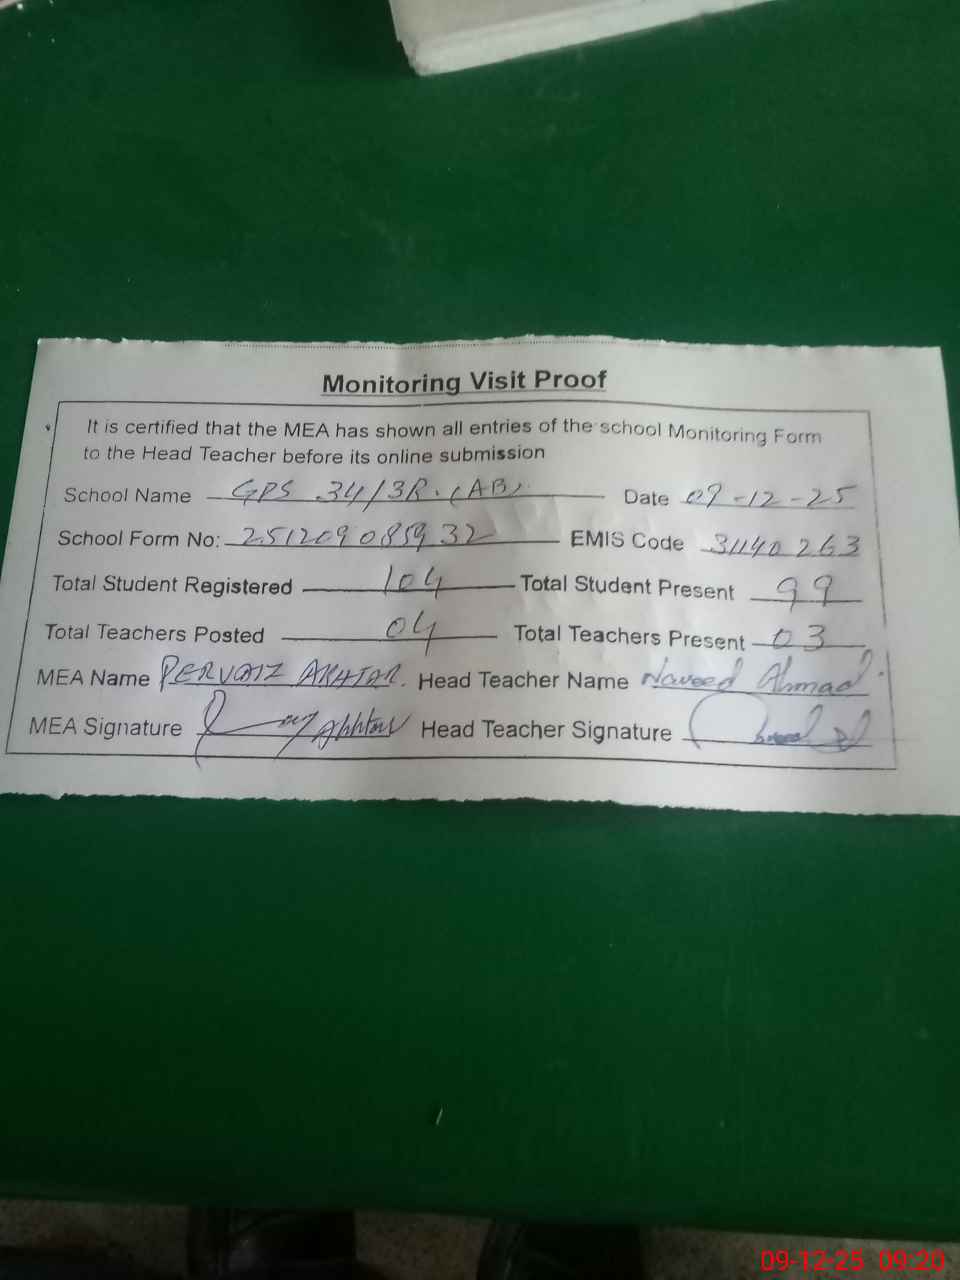 Monitoring Visit Proof
It is certified that the MEA has shown all entries of the school Monitoring Form
to the Head Teacher before its online submission
School Name GPS 34/3R. (AB). Date 09-12-25
School Form No: 251209085932 EMIS Code 31140263
Total Student Registered 104 Total Student Present 99
Total Teachers Posted 04 Total Teachers Present 03
MEA Name PERVAIZ AKHTAR. Head Teacher Name Naveed Ahmad
MEA Signature Akhtar Head Teacher Signature
09-12-25 09:20